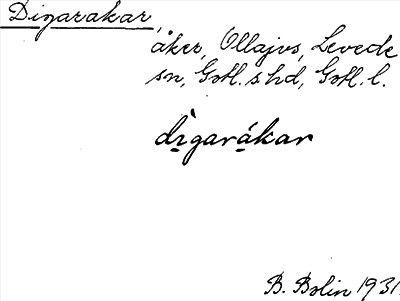 Digarakar,
åker, Ollajvs, Levede
sn, Gotl. s hd, Gotl. l.
dìgarákar
B. Bolin 1931.